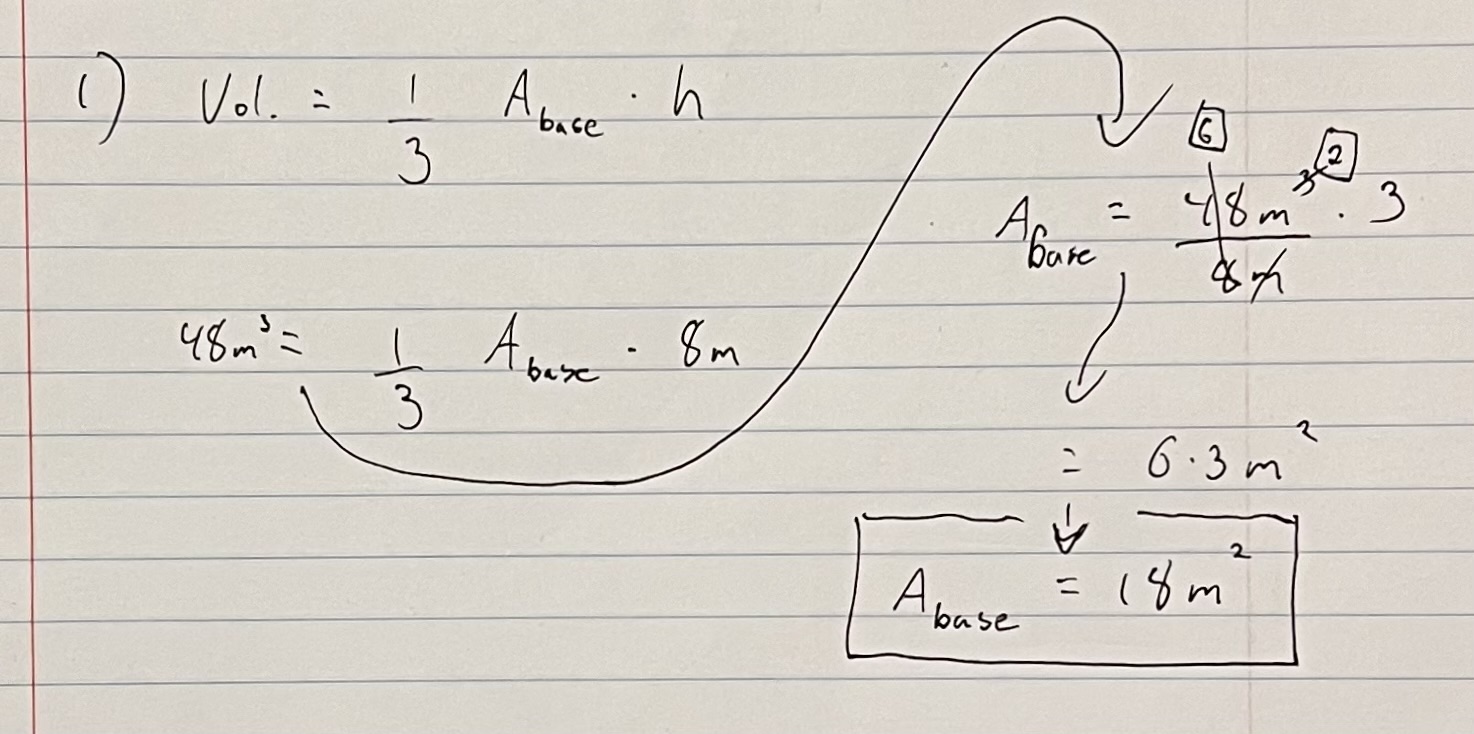 1) Vol. = 1/3 A_base · h
48m³ = 1/3 A_base · 8m
6 2
A_base = 48m³/8m · 3
= 6·3 m²
A_base = 18m²